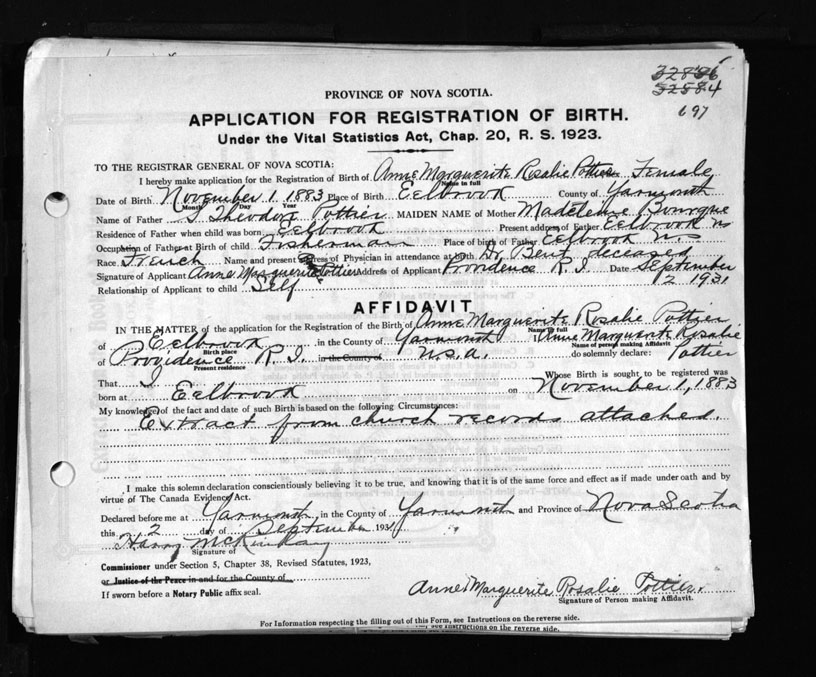 32836
32584
697
PROVINCE OF NOVA SCOTIA.
APPLICATION FOR REGISTRATION OF BIRTH.
Under the Vital Statistics Act, Chap. 20, R. S. 1923.
TO THE REGISTRAR GENERAL OF NOVA SCOTIA:
I hereby make application for the Registration of Birth of Anne Marguerite Rosalie Pottier Female
Name in full
Date of Birth November 1 1883 Place of Birth Eelbrook County of Yarmouth
Month Day Year
Name of Father Theodore Pottier MAIDEN NAME of Mother Madeleine
Residence of Father when child was born Eelbrook Present address of Father Eelbrook N S
Occupation of Father at Birth of child Fisherman Place of birth of Father Eelbrook N.S.
Race French Name and present address of Physician in attendance at birth Dr Bent deceased
Signature of Applicant Anne Marguerite Pottier Address of Applicant Providence R. I. Date September
2 1931
Relationship of Applicant to child Self
AFFIDAVIT
IN THE MATTER of the application for the Registration of the Birth of Anne Marguerite Rosalie Pottier
Name in full
of Eelbrook in the County of Yarmouth Anne Marguerite Rosalie
Birth place Name of person making Affidavit
of Providence R. I. in the County of U.S.A. do solemnly declare: Pottier
Present residence
That I Whose Birth is sought to be registered was
born at Eelbrook on November 1, 1883
My knowledge of the fact and date of such Birth is based on the following Circumstances:
Extract from church records attached.
I make this solemn declaration conscientiously believing it to be true, and knowing that it is of the same force and effect as if made under oath and by
virtue of The Canada Evidence Act.
Declared before me at Yarmouth, in the County of Yarmouth and Province of Nova Scotia
this 2 day of September 1931
Harry McKinlay
Signature of
Commissioner under Section 5, Chapter 38, Revised Statutes, 1923,
or Justice of the Peace in and for the County of
If sworn before a Notary Public affix seal.
Anne Marguerite Rosalie Pottier.
Signature of Person making Affidavit.
For Information respecting the filling out of this Form, see Instructions on the reverse side.
, see Instructions on the reverse side.